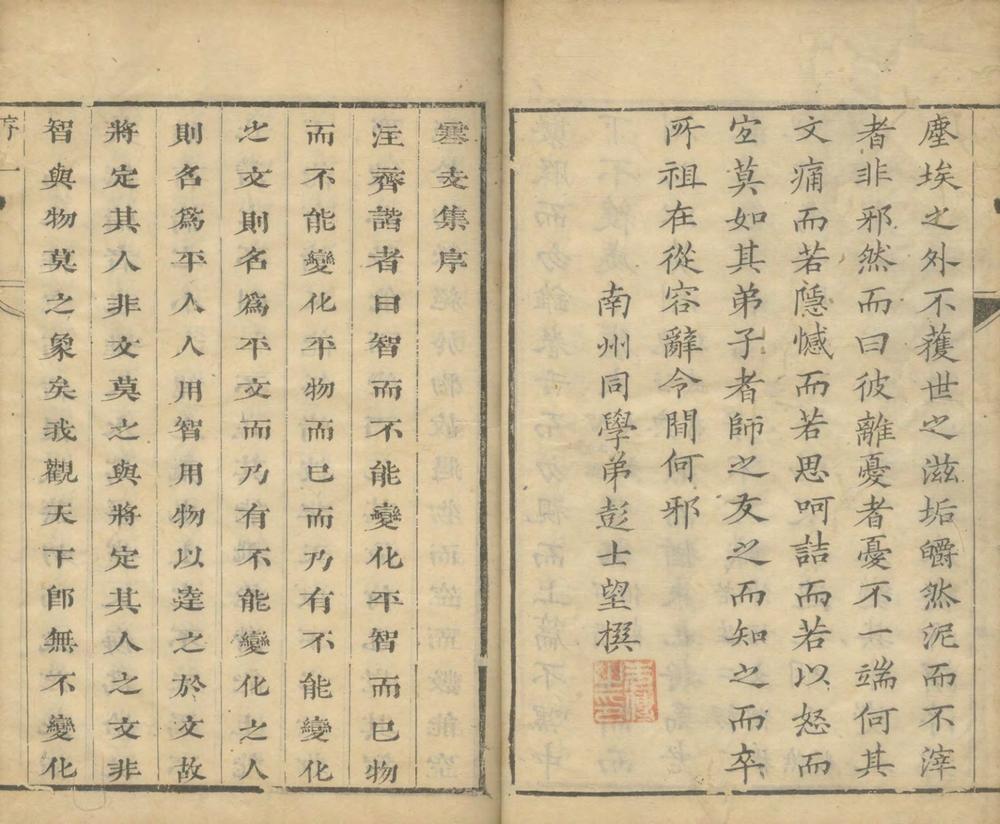 塵埃之外不獲世之滋垢皭然泥而不滓
者非邪然而曰彼離憂者憂不一端何其
文痛而若隱憾而若思呵詰而若以怒而
宐莫如其弟子者師之友之而知之而卒
所祖在從容辭令間何邪
南州同學弟彭士望撰
寒支集序
注齊諧者曰智而不能變化平智而已物
而不能變化平物而已而乃有不能變化
之文則名爲平文而乃有不能變化之人
則名爲平人人用智用物以達之於文故
將定其人非文莫之與將定其人之文非
智與物莫之象矣我觀天下卽無不變化
序 一